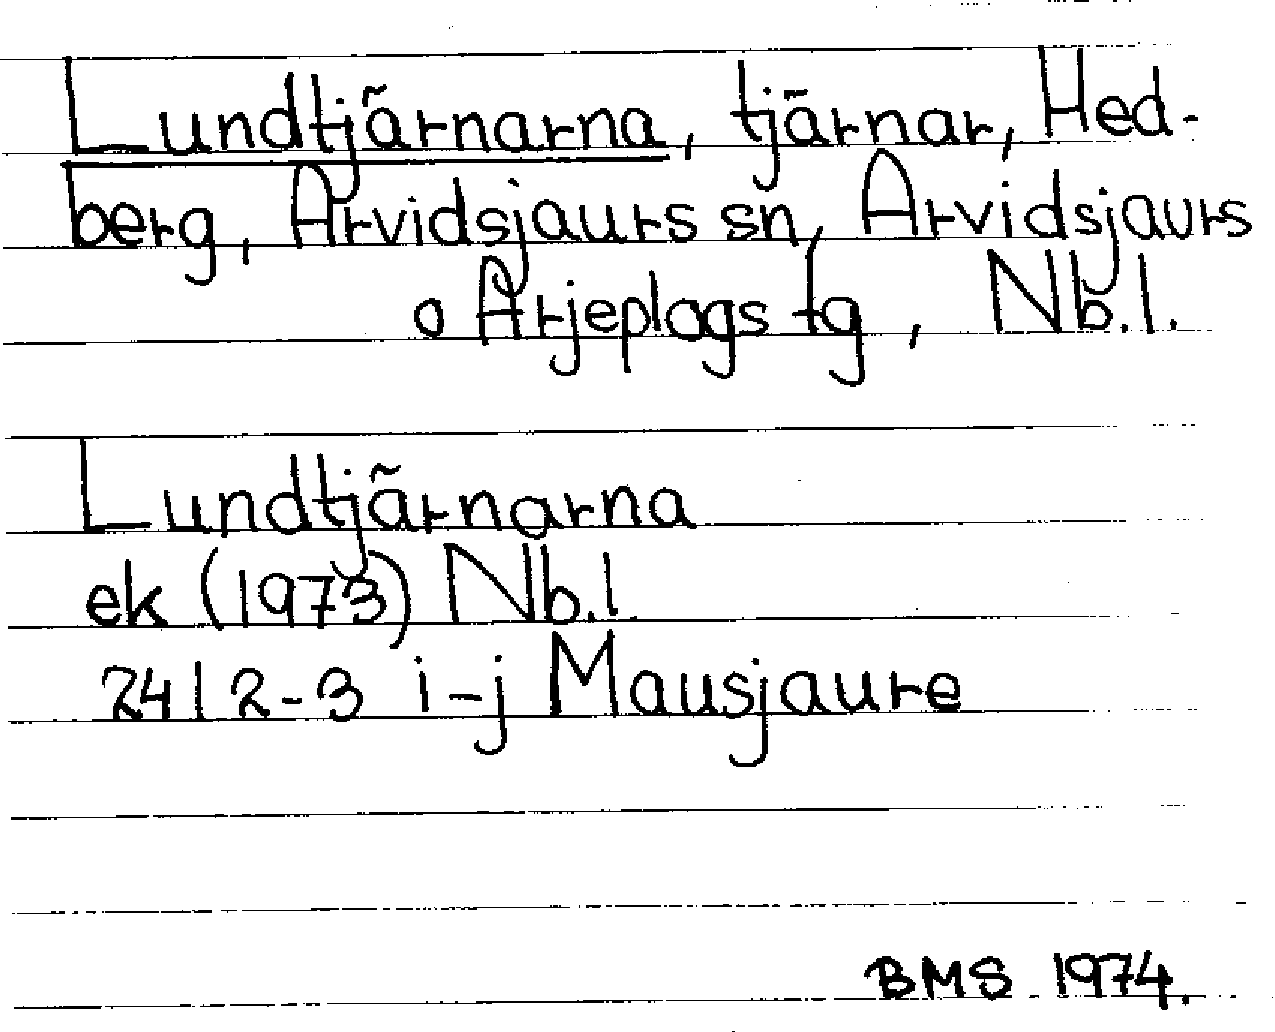 Lundtjärnarna, tjärnar, Hed-
berg, Arvidsjaurs sn, Arvidsjaurs
o Arjeplogs tg, Nb.l.
Lundtjärnarna
ek (1973) Nb.l
24I 2-3 i-j Mausjaure
BMS 1974.